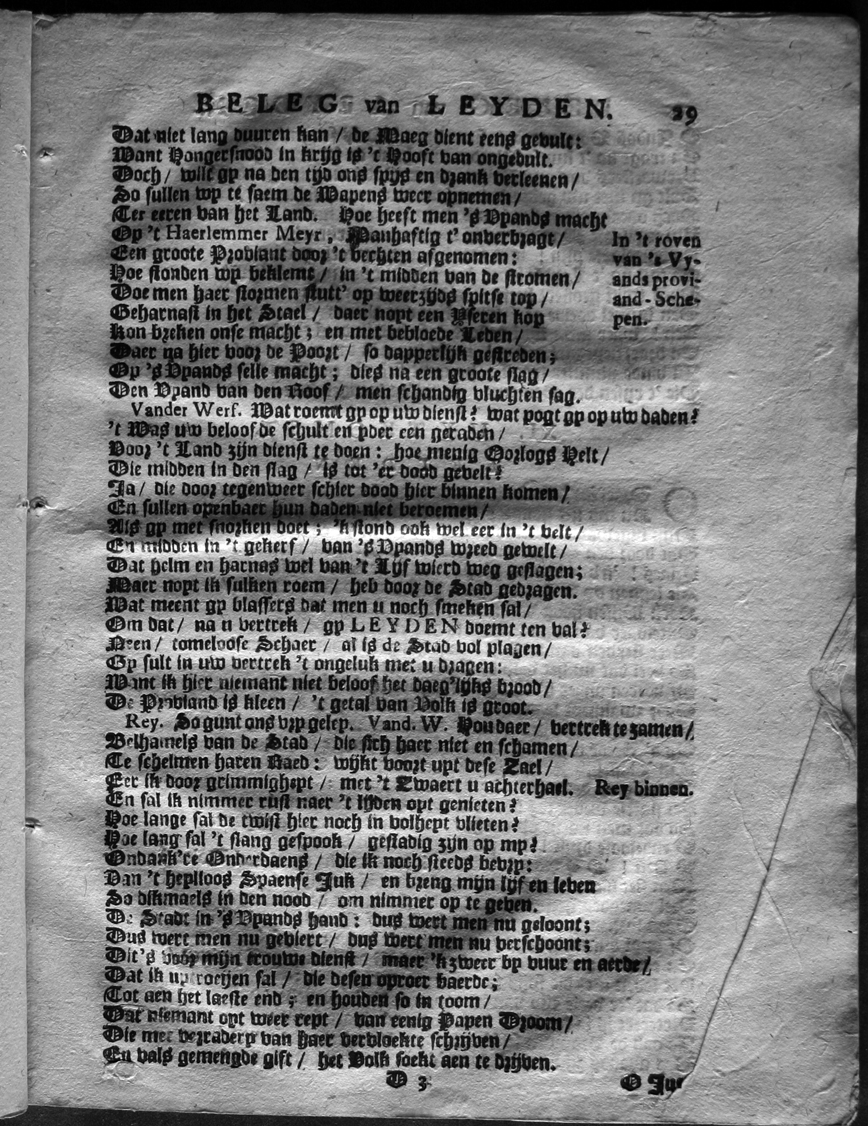 BELEG van LEYDEN. 29
Dat niet lang duuren kan / de Maeg dient eens gevult:
Want Hongersnood in krijg is 't Hooft van ongedult.
Doch / wilt gy na den tijd ons spijs en drank verleenen /
So sullen wy te saem de Wapens weer opnemen /
Ter eeren van het Land. Hoe heeft men 's Vyands macht
Op 't Haerlemmer Meyr, Manhaftig t' onderbragt /
Een groote Proviant door 't vechten afgenomen:
Hoe stonden wy beklemt / in 't midden van de stromen /
Doe men haer stormen stutt' op weerzijds spitse top /
Geharnast in het Stael / daer noyt een Yseren kop
Kon breken onse macht; en met bebloede Leden /
Daer na hier voor de Poort / so dapperlijk gestreden;
Op 's Vyands felle macht; dies na een groote slag /
Den Vyand van den Roof / men schandig vluchten sag.
In 't roven
van 's Vy-
ands provi-
and-Sche-
pen.
Vander Werf. Wat roemt gy op uw dienst? wat pogt gy op uw daden?
't Was uw beloofde schult en yder een geraden /
Voor 't Land zijn dienst te doen: hoe menig Oorlogs Helt /
Die midden in den slag / is tot 'er dood gevelt?
Ja / die door tegenweer schier dood hier binnen komen /
En sullen openbaer hun daden niet beroemen /
Als gy met snorken doet; 'k stond ook wel eer in 't velt /
En midden in 't gekerf / van 's Vyands wreed gewelt /
Dat helm en harnas wel van 't Lijf wierd weg geslagen;
Maer noyt ik sulken roem / heb door de Stad gedragen.
Wat meent gy blaffers dat men u noch smeken sal /
Om dat / na u vertrek / gy LEYDEN doemt ten val?
Neen / tomeloose Schaer / al is de Stad vol plagen /
Gy sult in uw vertrek 't ongeluk met u dragen:
Want ik hier niemant niet beloof het daeg'lijks brood /
De Proviand is kleen / 't getal van Volk is groot.
Rey. So gunt ons vry geley. Vand. W. Houdaer / vertrek te zamen /
Belhamels van de Stad / die sich haer niet en schamen /
Te schelmen haren Raed: wijkt voort uyt dese Zael /
Eer ik door grimmigheyt / met 't Zwaert u achterhael. Rey binnen.
En sal ik nimmer rust naer 't lijden oyt genieten?
Hoe lange sal de twist hier noch in volheyt vlieten?
Hoe lang sal 't slang gespook / gestadig zijn op my?
Ondank're Onderdaens / die ik noch steeds bevry:
Van 't heylloos Spaense Juk / en breng mijn lijf en leven
So dikmaels in den nood / om nimmer op te geven.
De Stadt in 's Vyands hand: dus wert men nu geloont;
Dus wert men nu geviert / dus wert men nu verschoont;
Dit's voor mijn trouwe dienst / maer 'k zweer by vuur en aerde /
Dat ik uytroeijen sal / die desen oproer baerde;
Tot aen het laeste end; en houden so in toom /
Dat niemant oyt weer rept / van eenig Papen Droom /
Die met verradery van haer vervloekte schrijven /
En vals gemengde gift / het Volk soekt aen te drijven.
D 3 O Ju